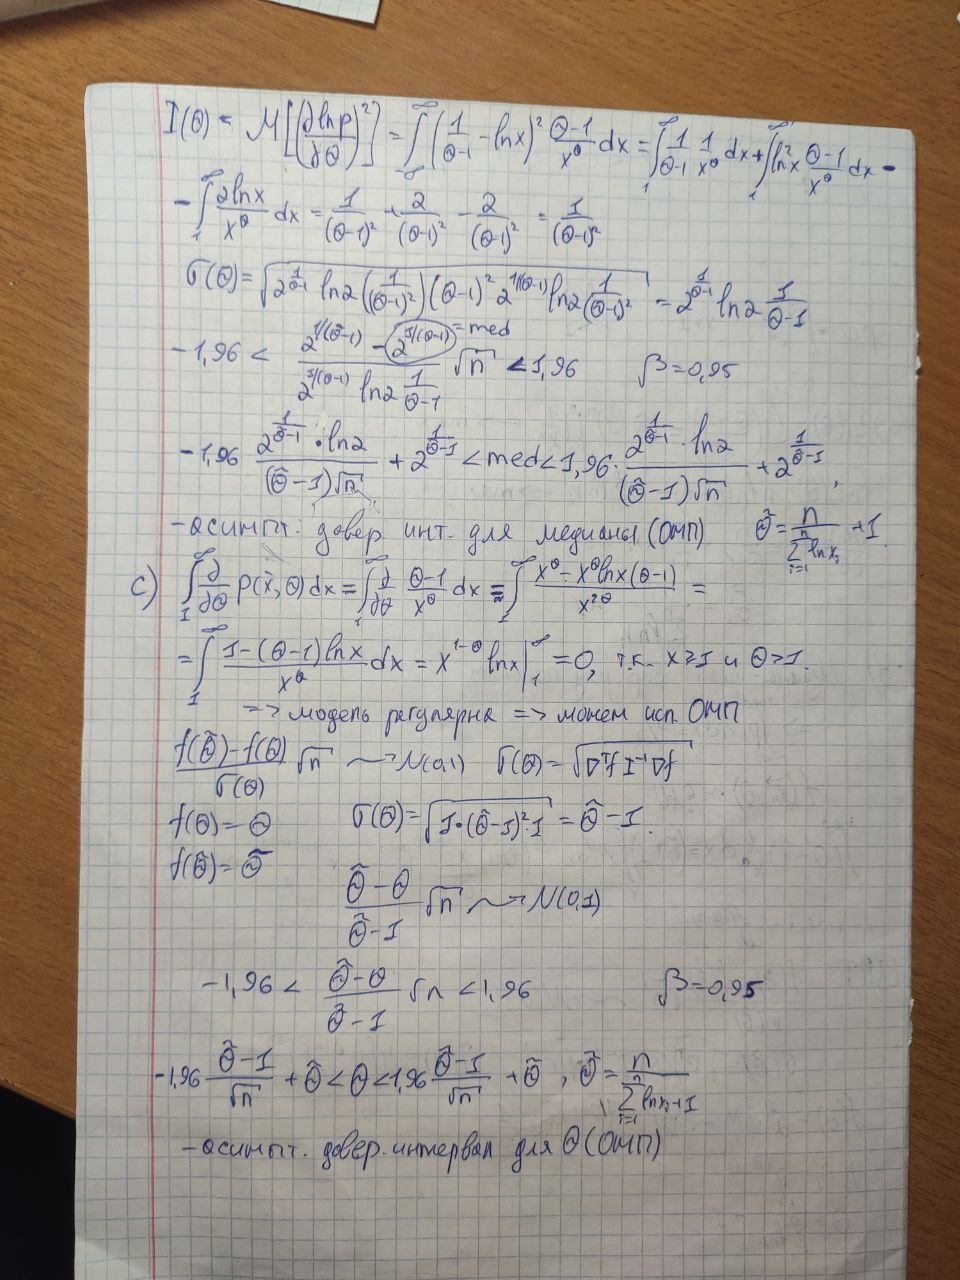 I(θ) = M[(∂lnp/∂θ)²] = ∫_{-∞}^{∞} (1/(θ-1) - lnx)² (θ-1)/x^θ dx = ∫_1^∞ 1/(θ-1) 1/x^θ dx + ∫_1^∞ ln²x (θ-1)/x^θ dx -
- ∫_1^∞ 2lnx/x^θ dx = 1/(θ-1)² + 2/(θ-1)² - 2/(θ-1)² = 1/(θ-1)²
σ(θ) = √(2^{1/(θ-1)} ln2 (1/(θ-1)²) (θ-1)² 2^{1/(θ-1)} ln2 (1/(θ-1)²)) = 2^{1/(θ-1)} ln2 1/(θ-1)
-1,96 < (2^{1/(θ̃-1)} - 2^{1/(θ-1)} = med)/(2^{1/(θ-1)} ln2 1/(θ-1)) √n < 1,96 β = 0,95
-1,96 (2^{1/(θ̃-1)} · ln2)/((θ̃-1)√n) + 2^{1/(θ̃-1)} < med < 1,96 · (2^{1/(θ̃-1)} · ln2)/((θ̃-1)√n) + 2^{1/(θ̃-1)},
- асимпт. довер. инт. для медианы (ОМП) θ̃ = n/(∑_{i=1}^n lnx_i) + 1.
c) ∫_1^∞ ∂/∂θ p(x⃗, θ) dx = ∫_1^∞ ∂/∂θ (θ-1)/x^θ dx = ∫_1^∞ (x^θ - x^θ lnx (θ-1))/x^{2θ} =
= ∫_1^∞ (1-(θ-1)lnx)/x^θ dx = x^{1-θ} lnx |_1^∞ = 0, т.к. x ≥ 1 и θ > 1.
=> модель регулярна => можем исп. ОМП
(f(θ̃) - f(θ))/σ(θ) √n ⇝ N(0,1) σ(θ) = √(∇ᵀf I⁻¹ ∇f)
f(θ) = θ σ(θ) = √(1·(θ̃-1)²·1) = θ̃ - 1.
f(θ̃) = θ̃
(θ̃ - θ)/(θ̃ - 1) √n ⇝ N(0,1)
-1,96 < (θ̃ - θ)/(θ̃ - 1) √n < 1,96 β = 0,95
-1,96 (θ̃ - 1)/√n + θ̃ < θ < 1,96 (θ̃ - 1)/√n + θ̃, θ̃ = n/(∑_{i=1}^n lnx_i + 1)
- асимпт. довер. интервал для θ (ОМП)